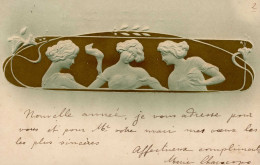 Nouvelle année, je vous adresse pour
vous et pour Mr votre mari mes vœux les
les plus sincères
Affectueux compliments